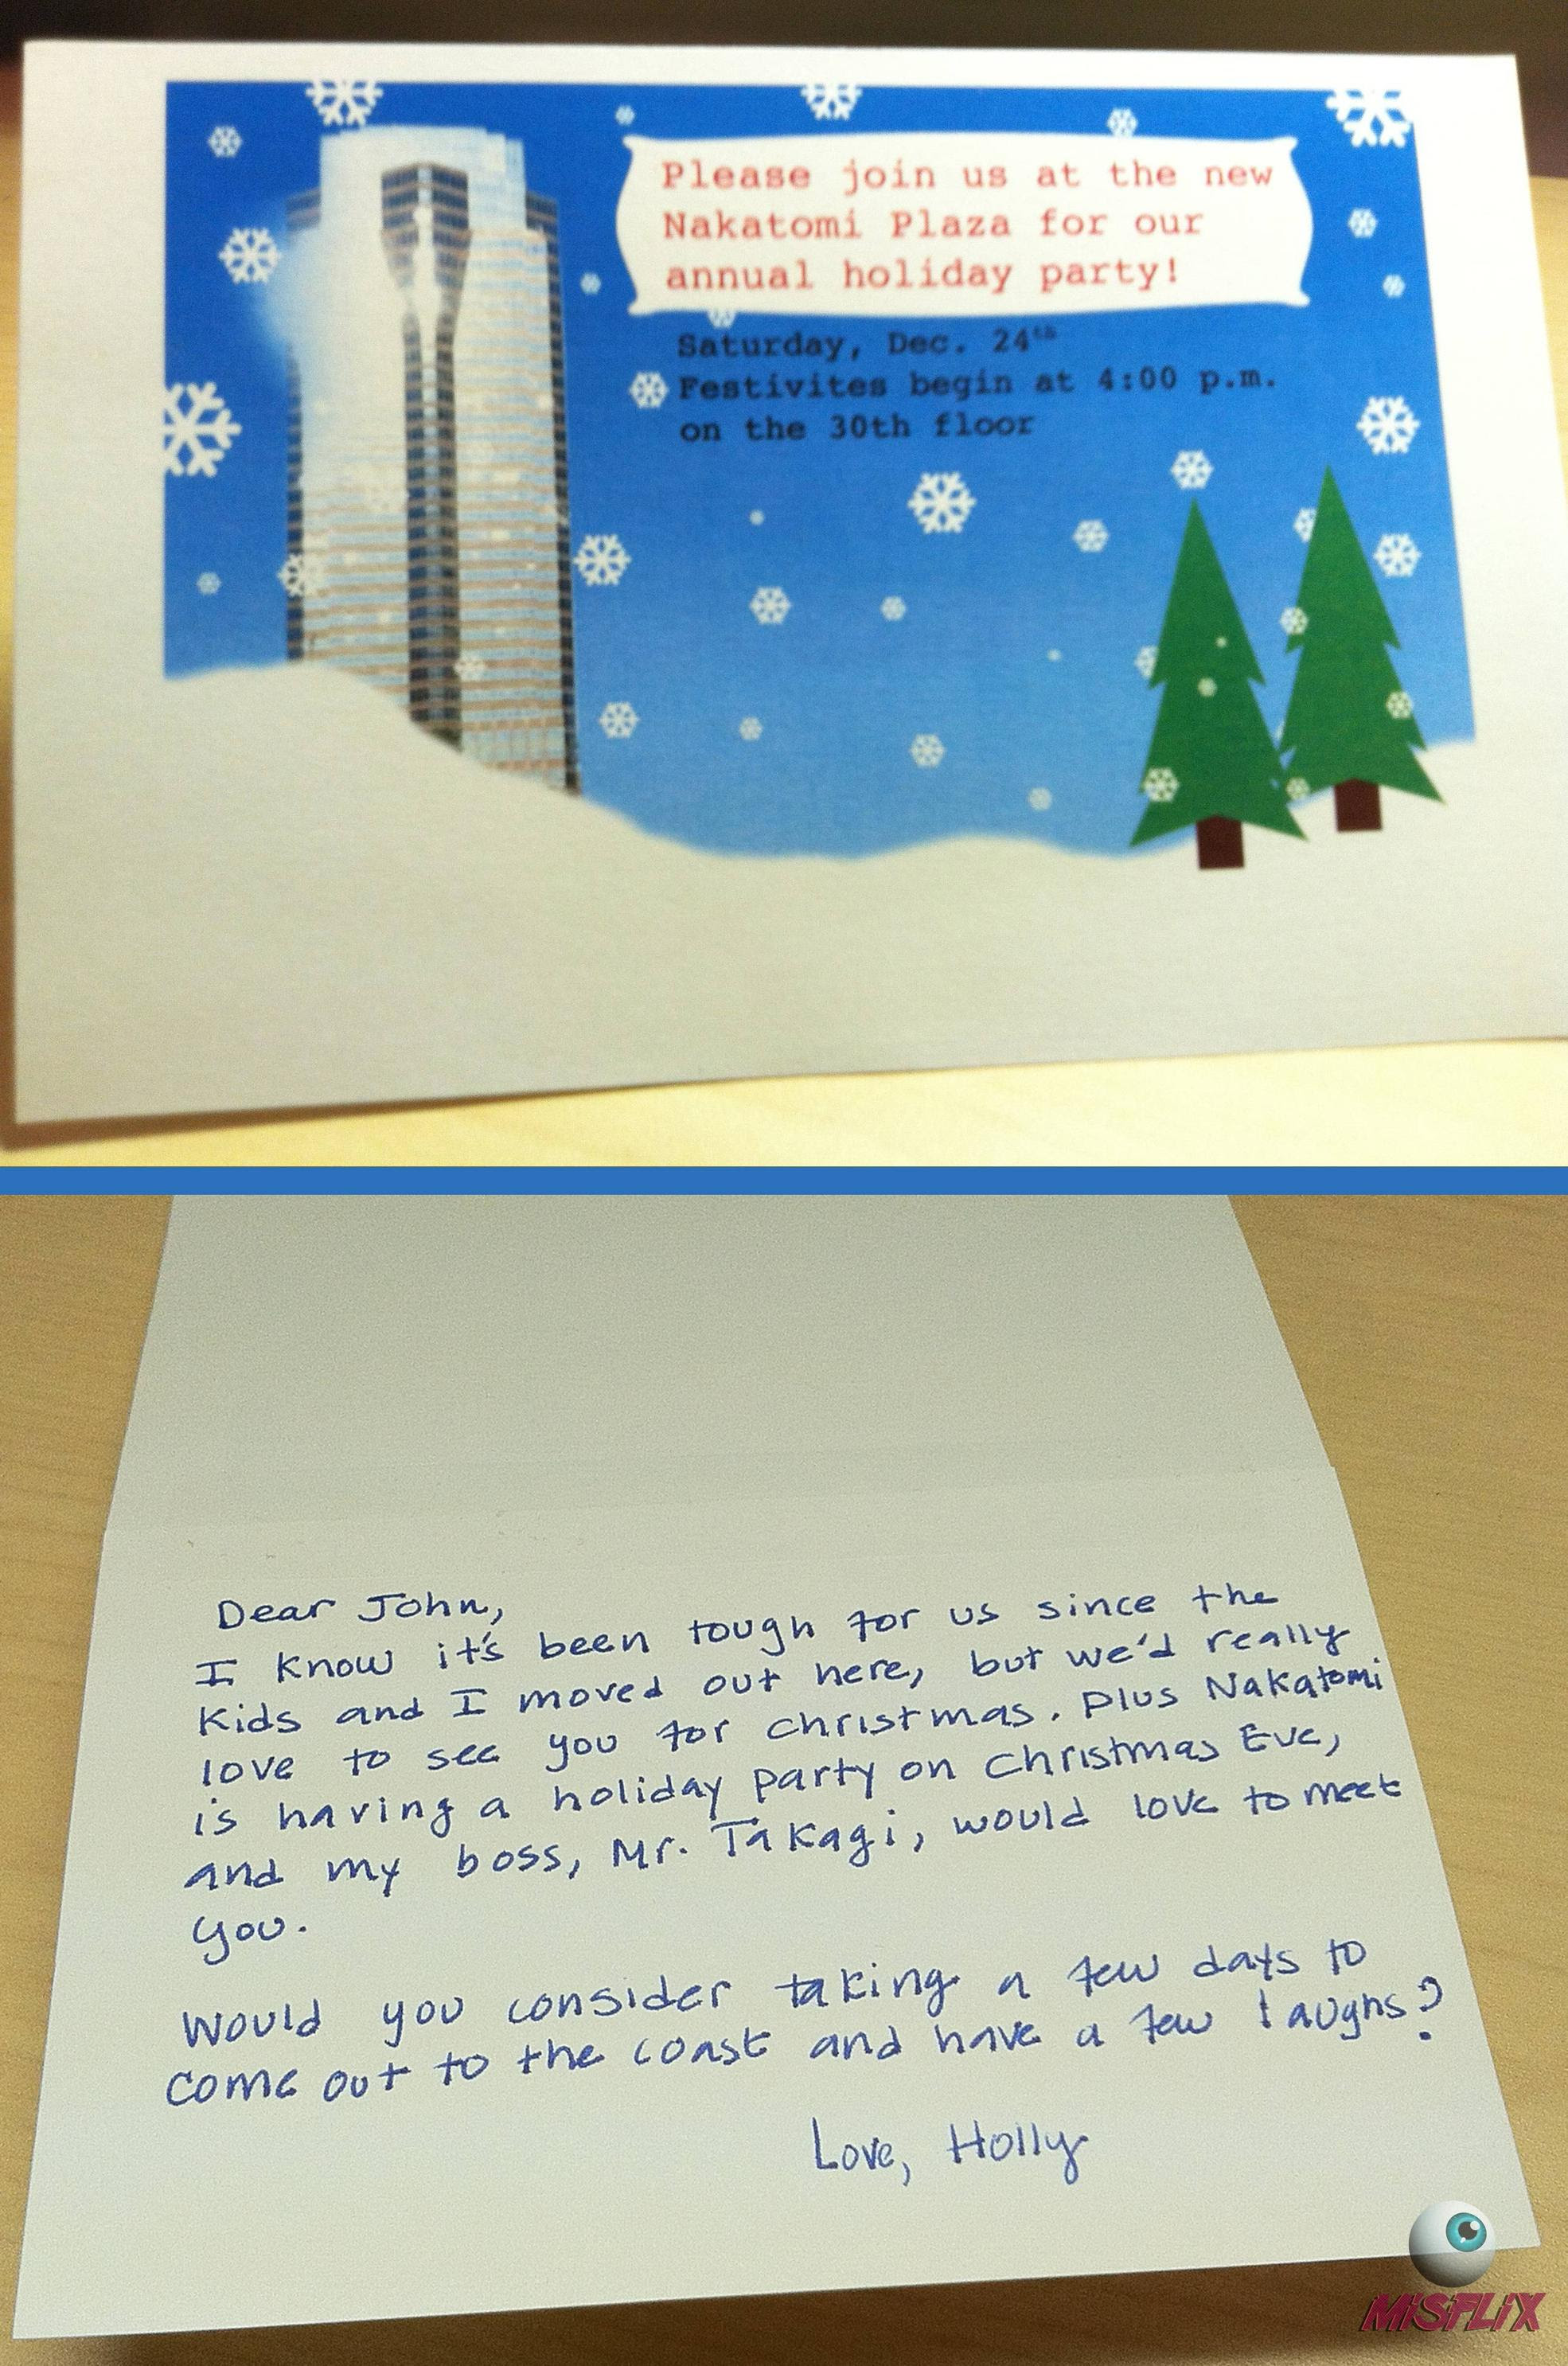 Please join us at the new
Nakatomi Plaza for our
annual holiday party!
Saturday, Dec. 24th
Festivites begin at 4:00 p.m.
on the 30th floor
Dear John,
I know it's been tough for us since the
kids and I moved out here, but we'd really
love to see you for christmas. Plus Nakatomi
is having a holiday party on Christmas Eve,
and my boss, Mr. Takagi, would love to meet
you.
Would you consider taking a few days to
come out to the coast and have a few laughs?
Love, Holly
MiSFLiX